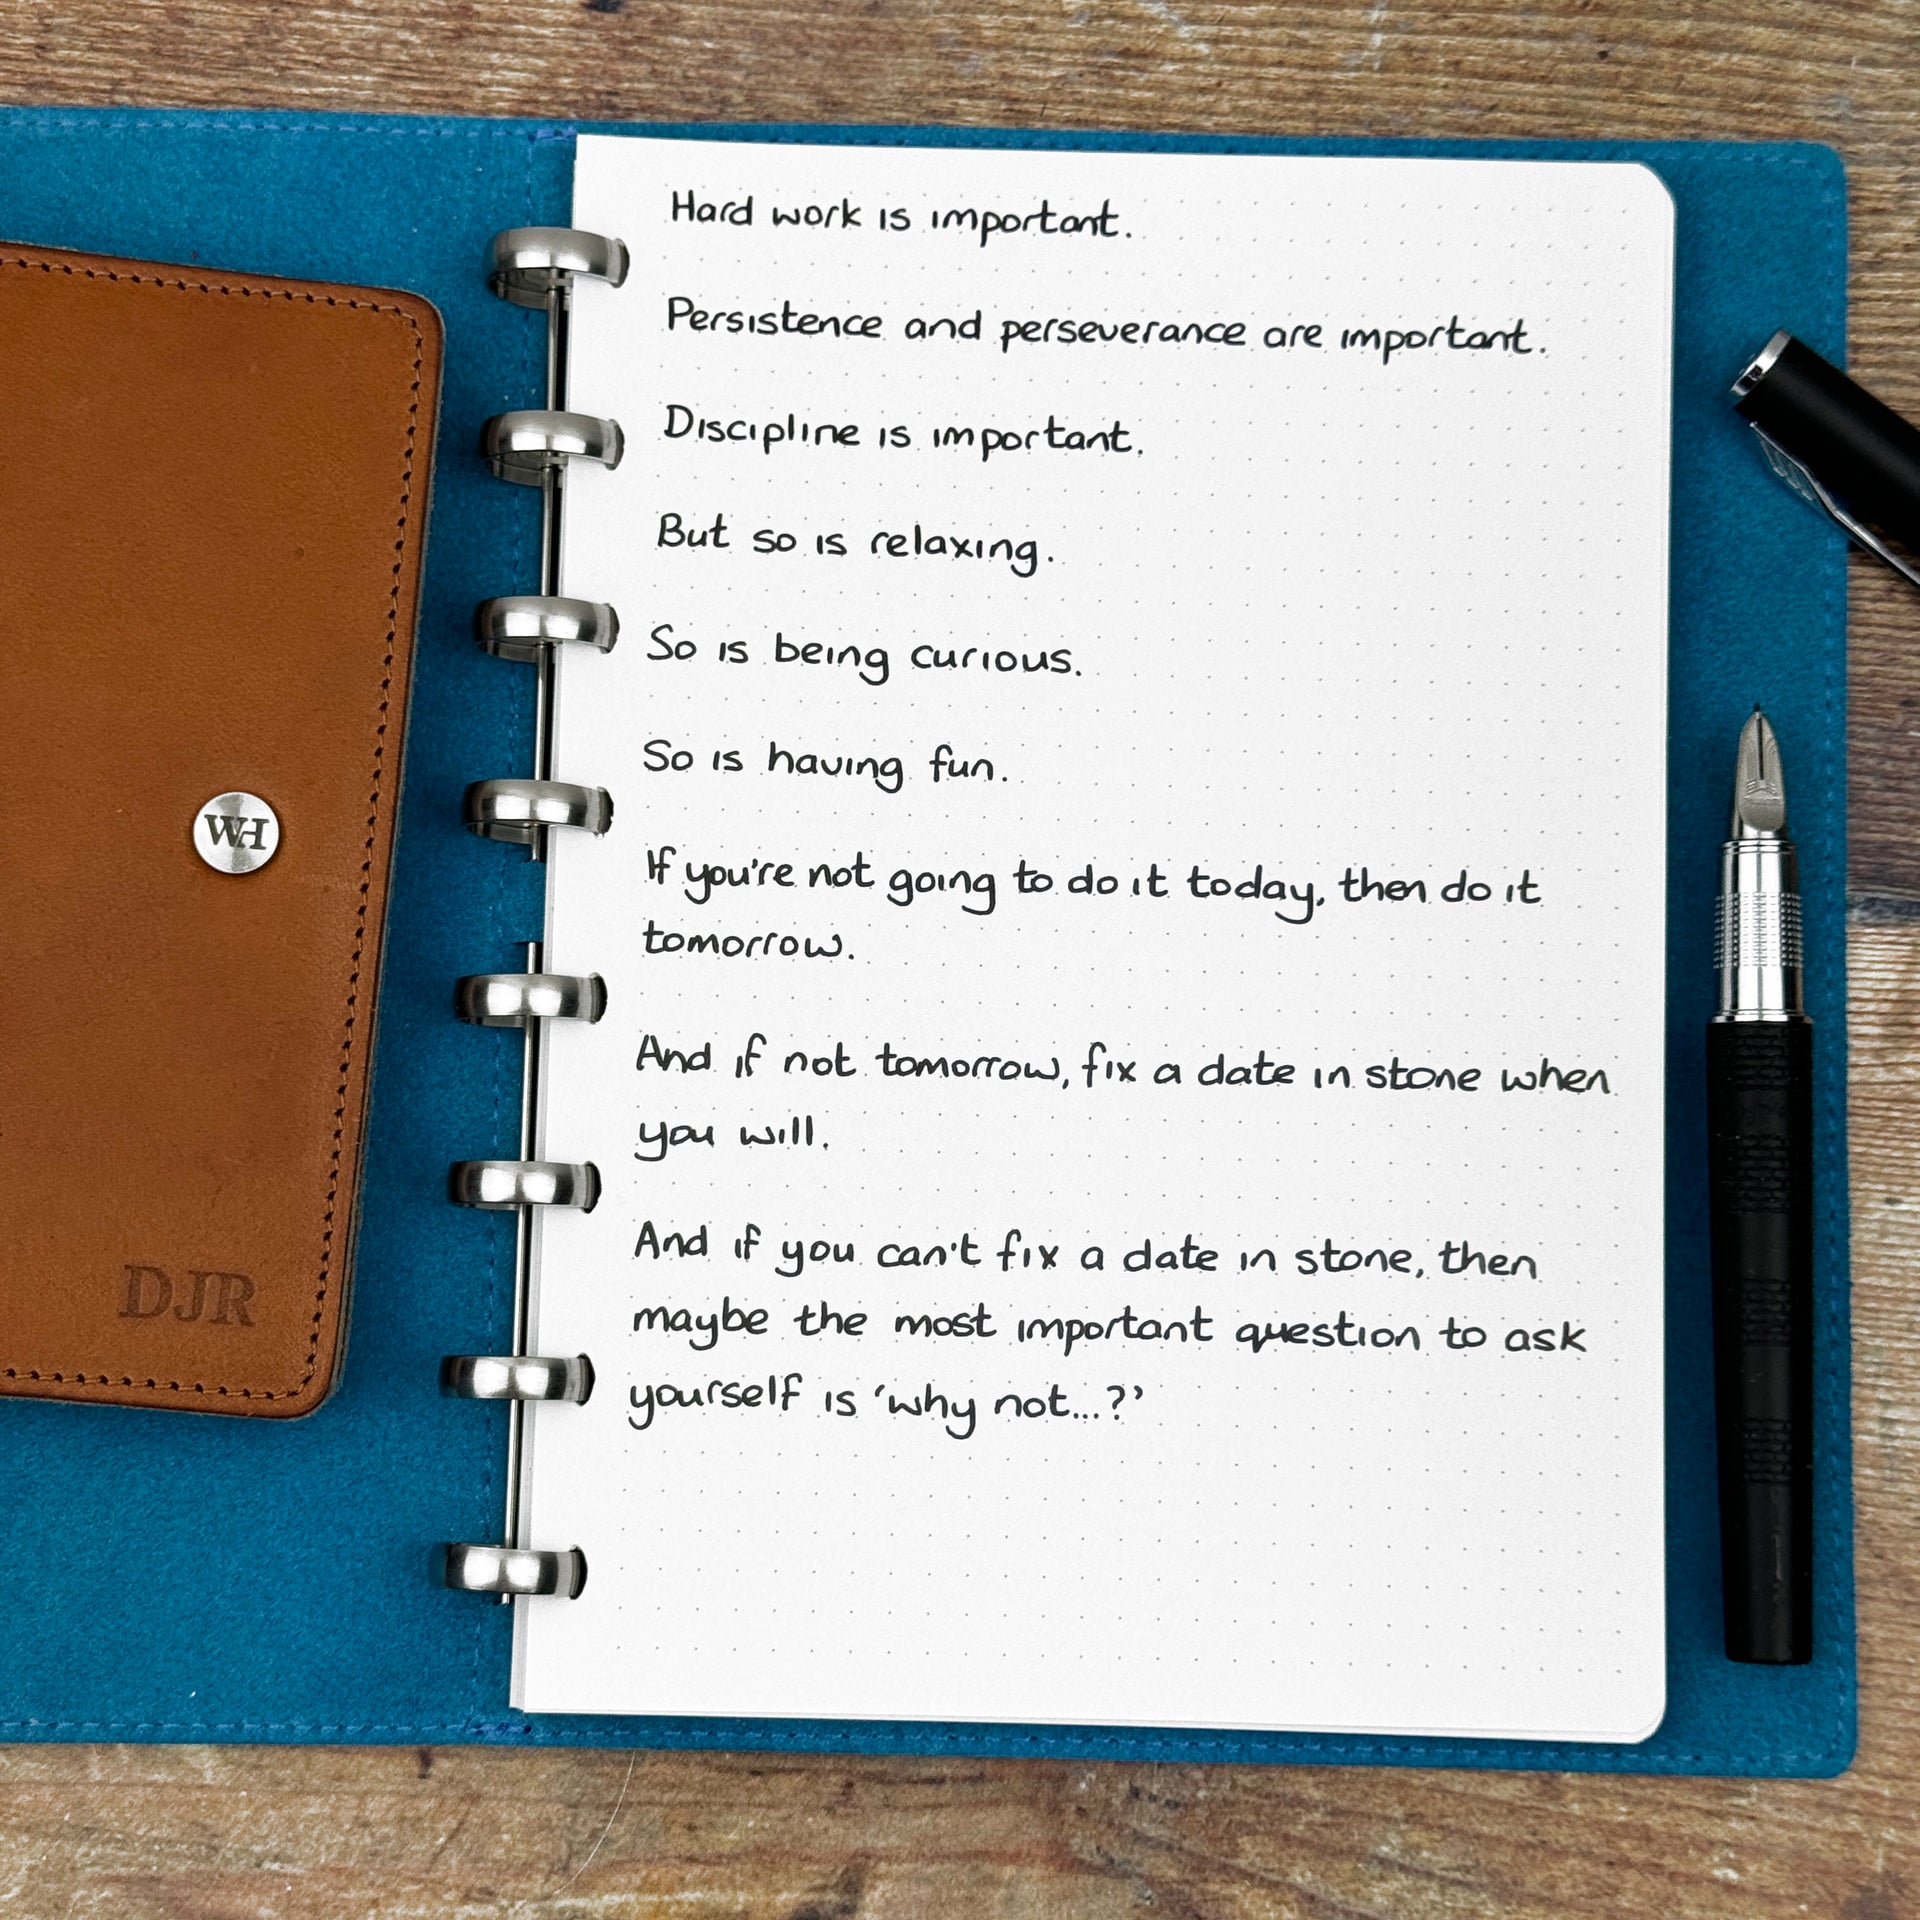 Hard work is important.
Persistence and perseverance are important.
Discipline is important.
But so is relaxing.
So is being curious.
So is having fun.
If you're not going to do it today, then do it
tomorrow.
And if not tomorrow, fix a date in stone when
you will.
And if you can't fix a date in stone, then
maybe the most important question to ask
yourself is 'why not...?'
WH
DJR